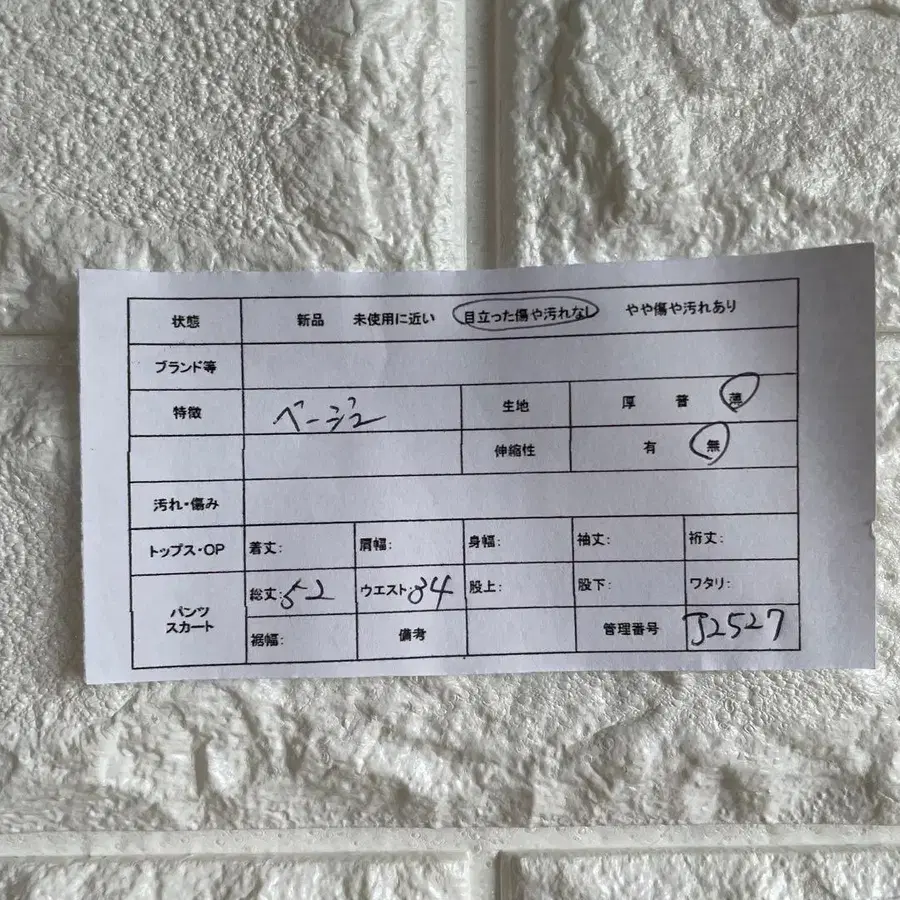 状態 新品 未使用に近い 目立った傷や汚れなし やや傷や汚れあり
ブランド等
特徴 ベージュ 生地 厚 普 薄
伸縮性 有 無
汚れ・傷み
トップス・OP 着丈: 肩幅: 身幅: 袖丈: 裄丈:
パンツ スカート 総丈:52 ウエスト:34 股上: 股下: ワタリ:
裾幅: 備考 管理番号 J2527